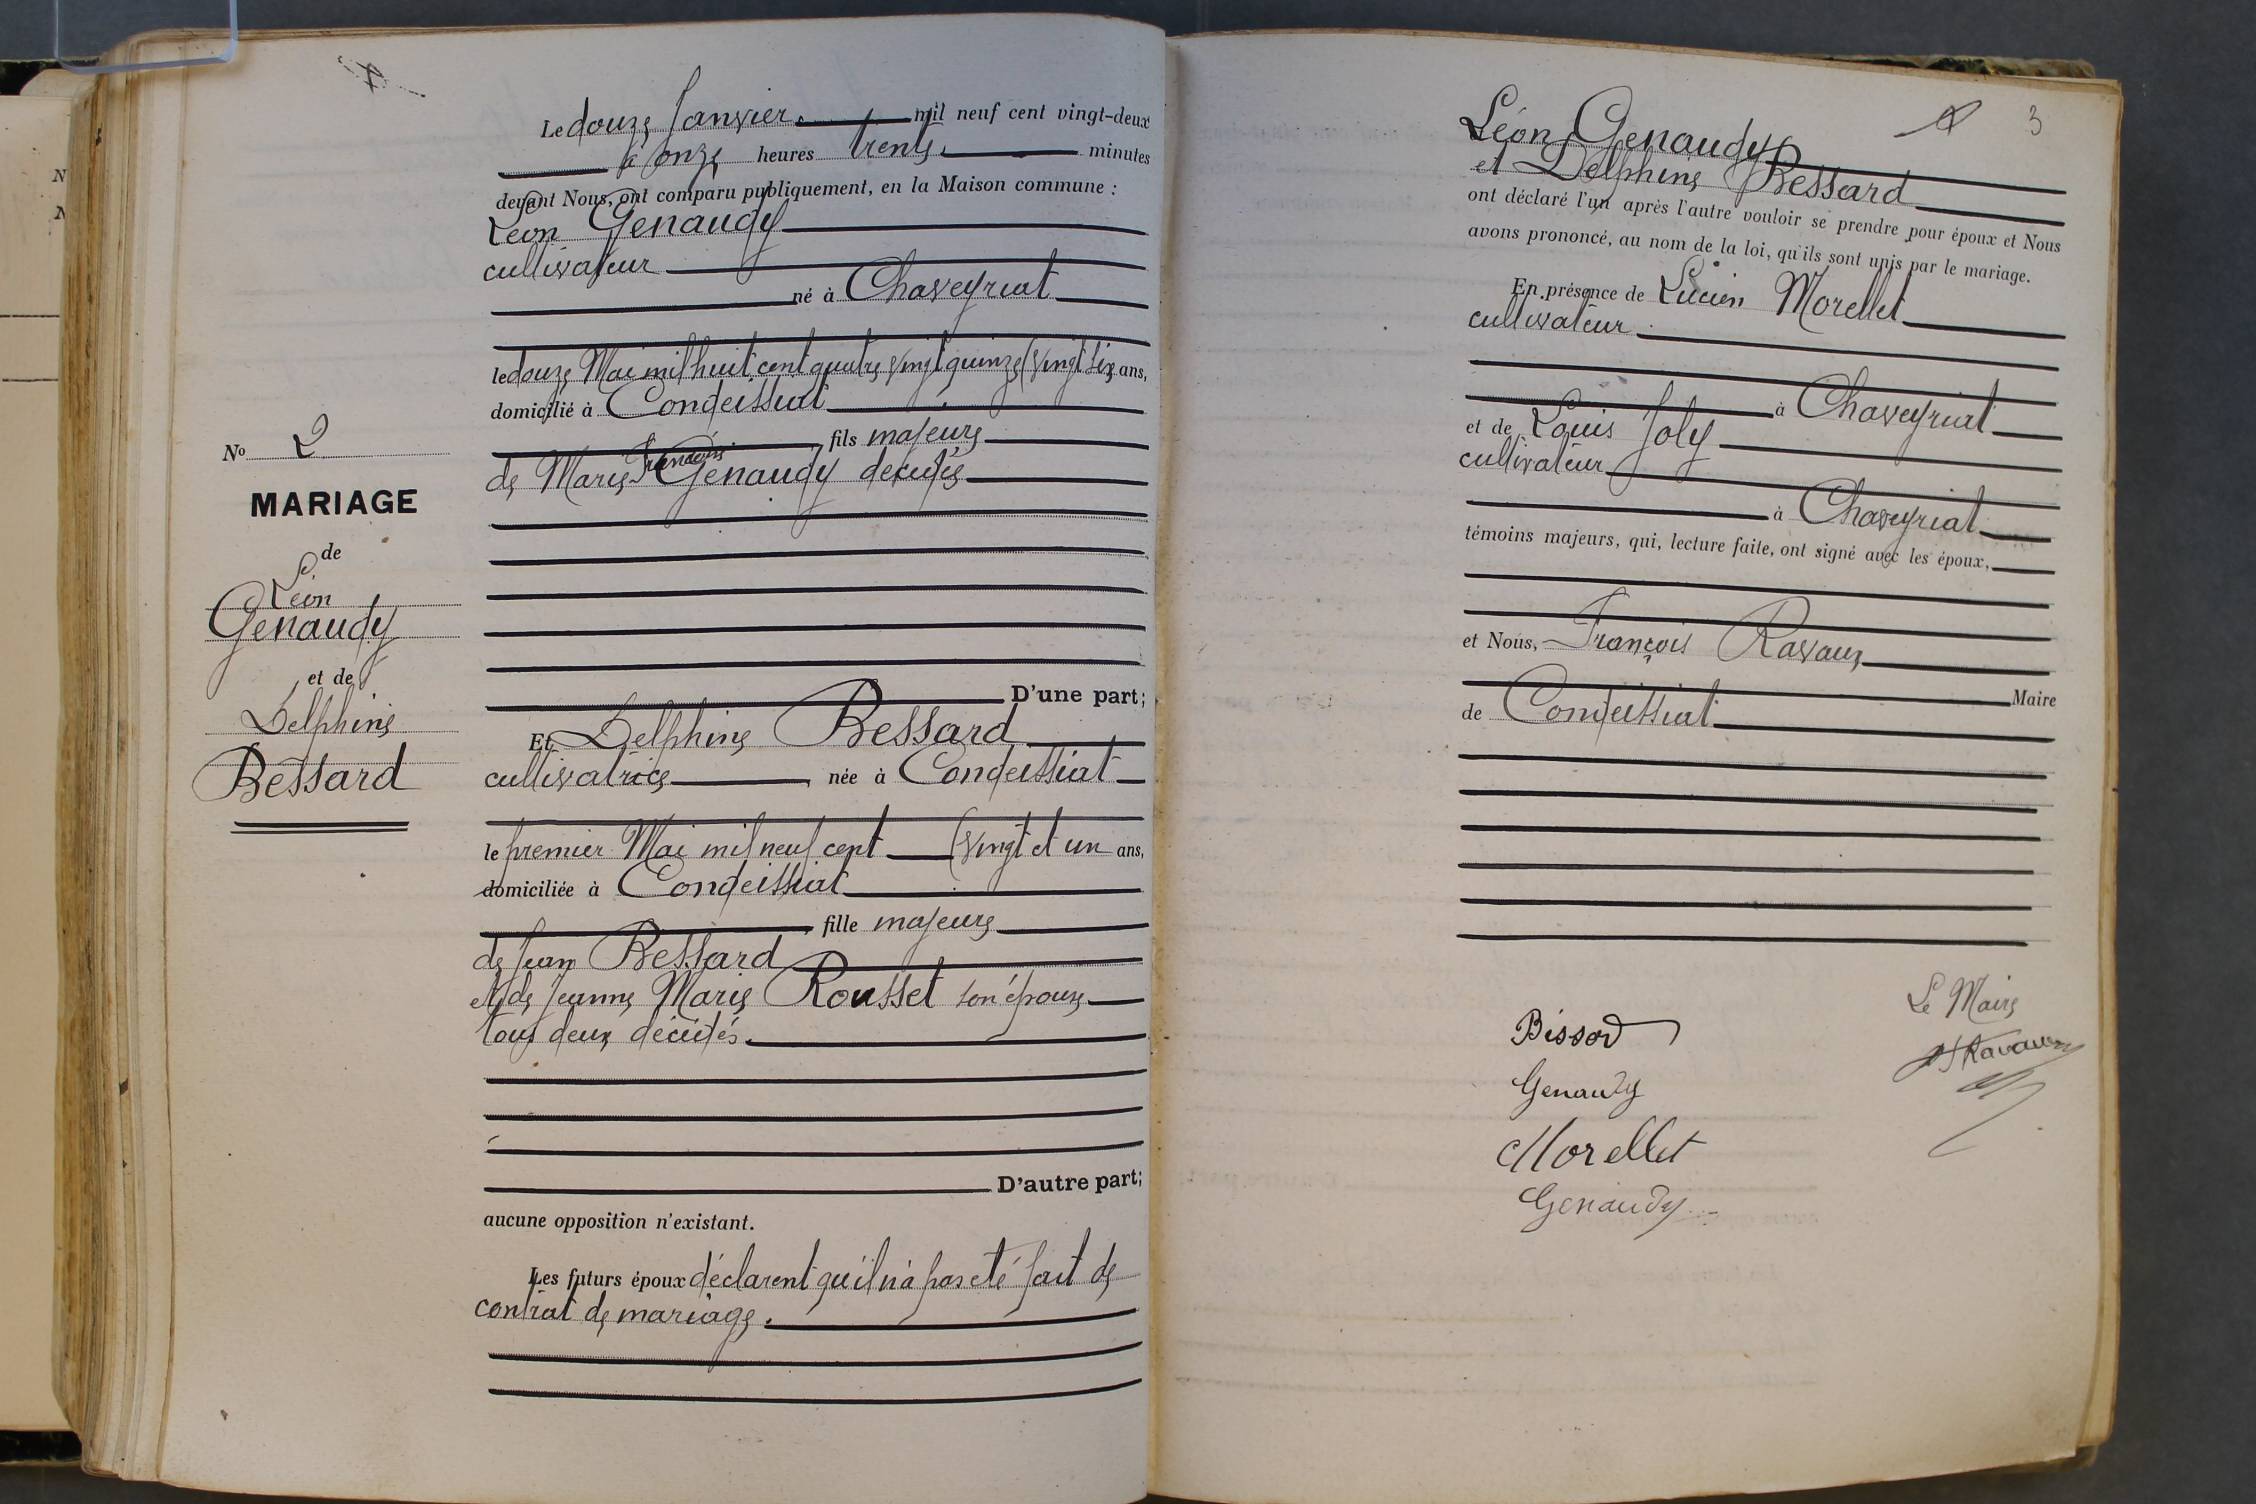 Le douze Janvier. mil neuf cent vingt-deux
à onze heures trente. minutes
devant Nous, ont comparu publiquement, en la Maison commune :
Léon Genaudy
cultivateur
né à Chaveyriat
le douze Mai mil huit cent quatre vingt quinze (vingt six ans,
domicilié à Condeissiat
fils majeure
de Marie François Genaudy décédée
D'une part;
Et Delphine Bessard
cultivatrice née à Condeissiat
le premier Mai mil neuf cent (vingt et un ans,
domiciliée à Condeissiat
fille majeure
de Jean Bessard
et de Jeanne Marie Rousset son épouse
tous deux décédés.
D'autre part;
aucune opposition n'existant.
Les futurs époux déclarent qu'il n'a pas été fait de
contrat de mariage.
No 2
MARIAGE
de
Léon
Genaudy
et de
Delphine
Bessard
3
Léon Genaudy
et Delphine Bessard
ont déclaré l'un après l'autre vouloir se prendre pour époux et Nous
avons prononcé, au nom de la loi, qu'ils sont unis par le mariage.
En présence de Lucien Morellet
cultivateur
à Chaveyriat
et de Louis Joly
cultivateur
à Chaveyriat
témoins majeurs, qui, lecture faite, ont signé avec les époux,
et Nous, François Ravaux
Maire
de Condeissiat
Le Maire
Ravaux
Bessard
Genaudy
Morellet
Genaudy